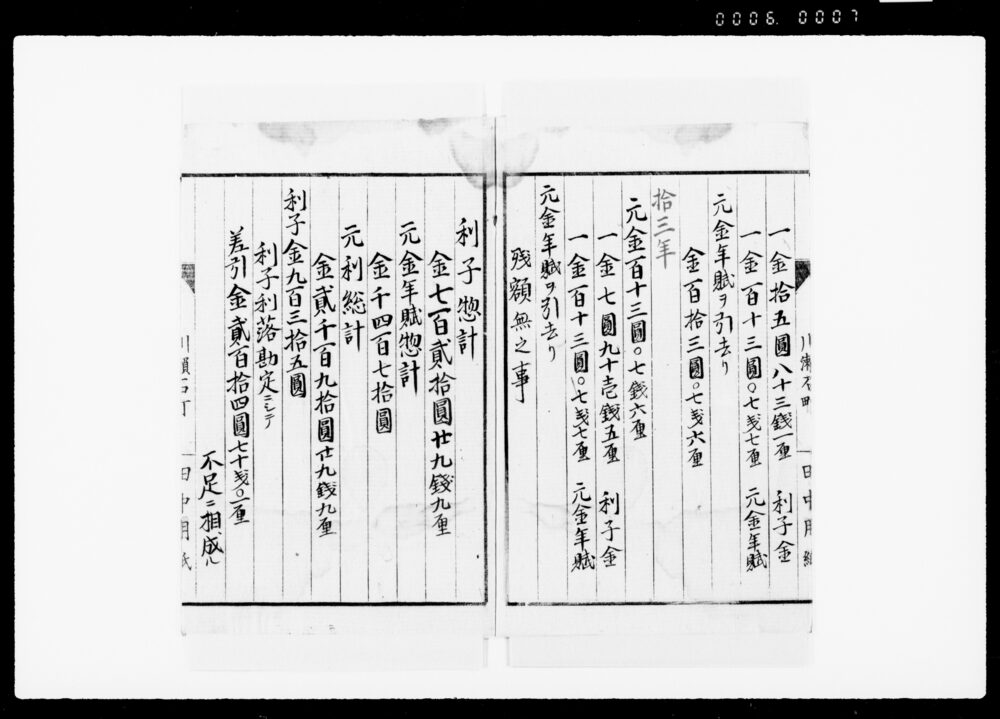 0006. 0007
一金拾五圓八十三錢一厘 利子金
一金百十三圓〇七戋七厘 元金年賦
元金年賦ヲ引去リ
金百拾三圓〇七戋六厘
拾三年
元金百十三圓〇七錢六厘
一金七圓九十壱錢五厘 利子金
一金百十三圓〇七戋七厘 元金年賦
元金年賦ヲ引去リ
残額無之事
利子惣計
金七百貳拾圓廿九錢九厘
元金年賦惣計
金千四百七拾圓
元利総計
金貳千百九拾圓廿九錢九厘
利子金九百三拾五圓
利子利落勘定ニシテ
差引金貳百拾四圓七十戋〇一厘
不足ニ相成ル
田中用紙